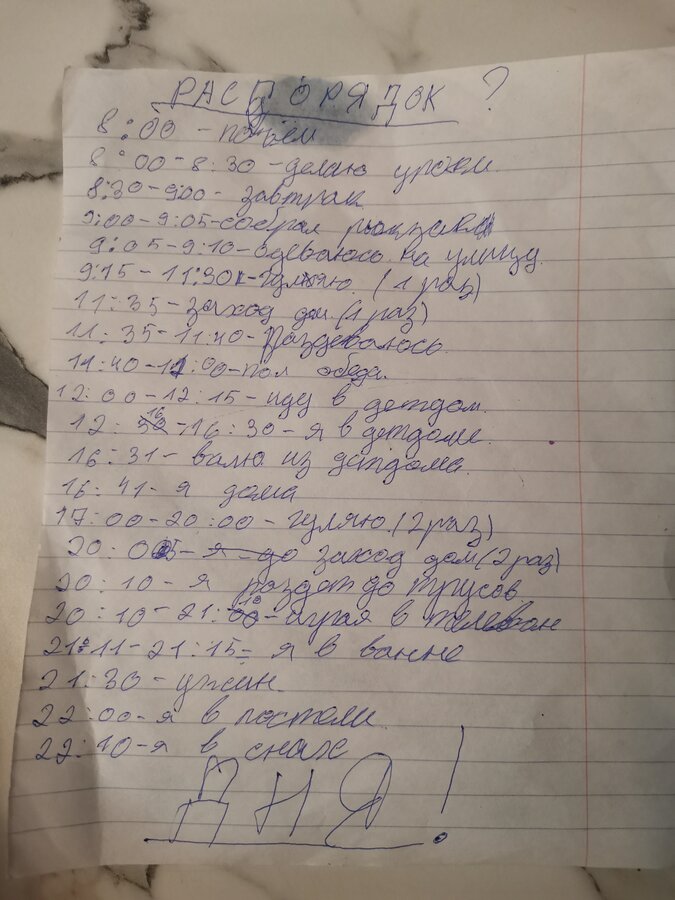 РАСПОРЯДОК ?
8:00 - подъём
8:00-8:30-делаю уроки.
8:30-9:00- завтрак
9:00-9:05-собрал рюкзак
9:05-9:10-одеваюсь на улицу.
9:15-11:30-гуляю. (1 раз)
11:35-заход дом.(1 раз)
11:35-11:40-Раздеваюсь.
11:40-12:00-пол обеда.
12:00-12:15-иду в детдом.
12:16-16:30-я в детдоме.
16:31-валю из детдома.
16:41-я дома
17:00-20:00-гуляю.(2 раз)
20:05-заход дом(2 раз)
20:10-я раздет до трусов.
20:10-21:10-играя в телевон
21:11-21:15= я в ванне
21:30-ужин.
22:00-я в постели.
22:10-я в снах
ДНЯ!